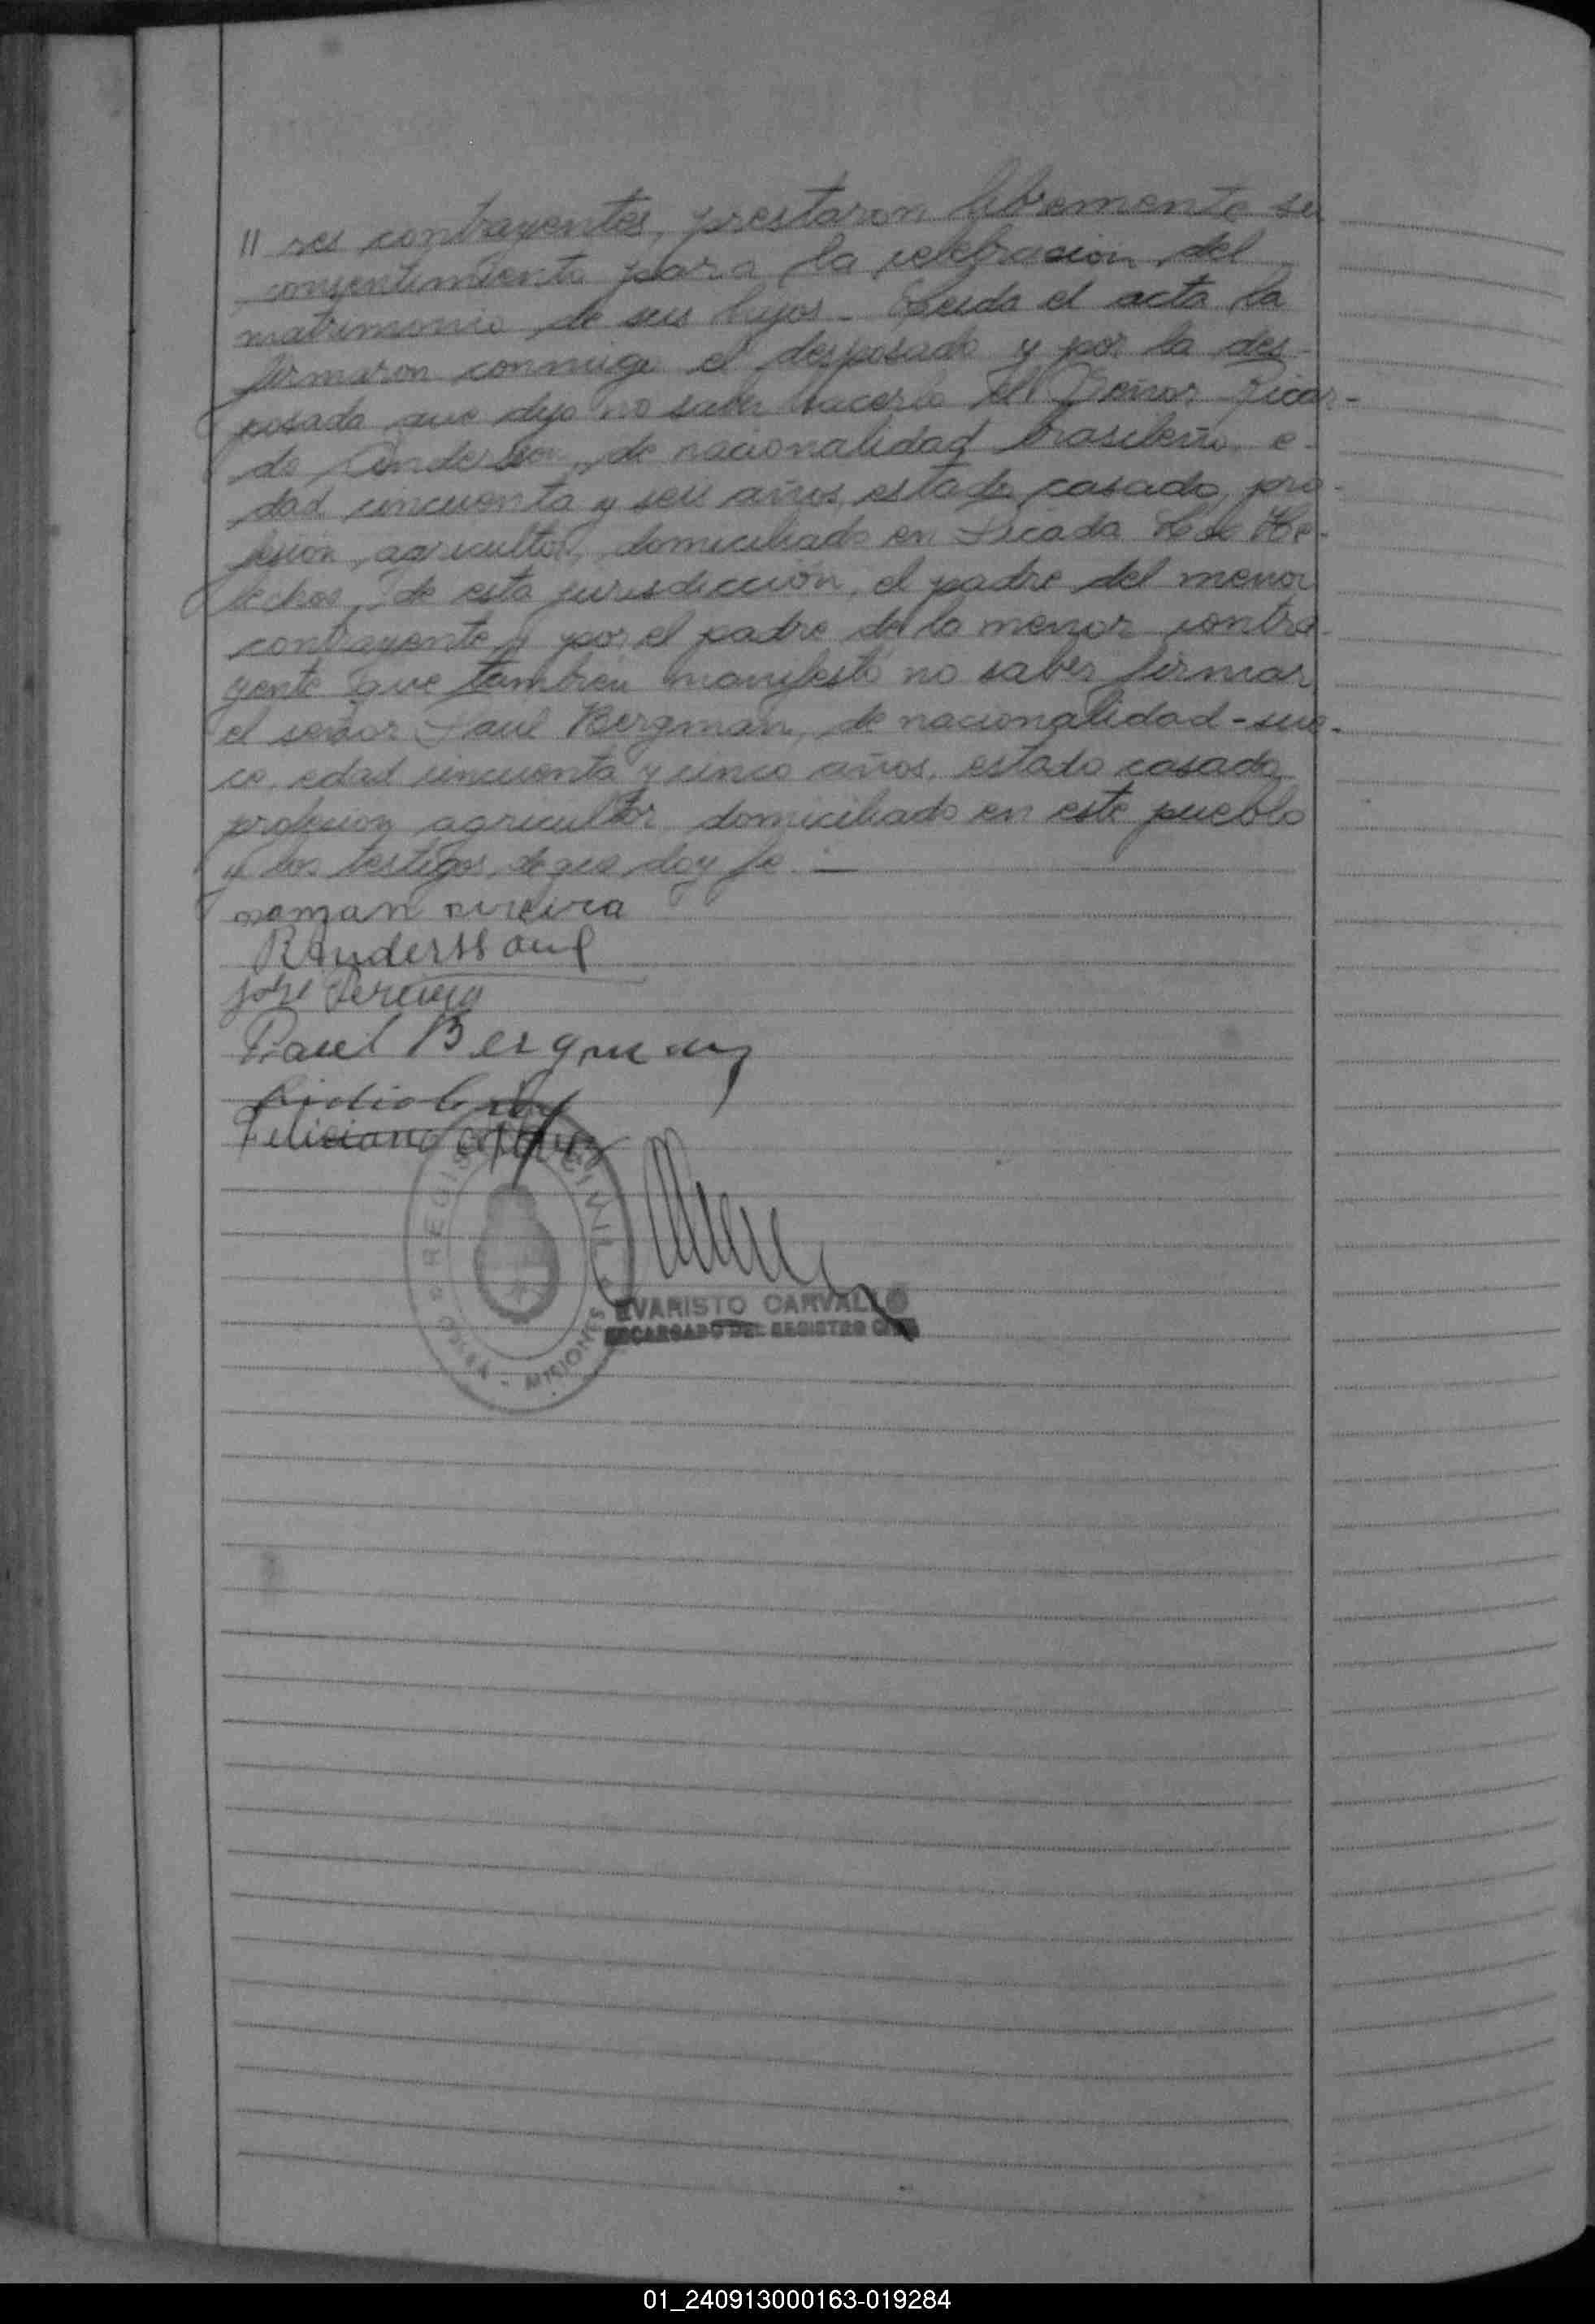 " res contrayentes, prestaron libremente su
consentimiento para la celebracion del
matrimonio de sus hijos. Leida el acta la
firmaron conmigo el desposado y por la des-
posada que dijo no saber hacerlo el Señor Ricar-
do Anderson, de nacionalidad brasileño, e-
dad cincuenta y seis años, estado casado, pro-
fesión, agricultor, domiciliado en Picada de He-
lechos, de esta jurisdicción, el padre del menor
contrayente y por el padre de la menor contra-
yente que tambien manifestó no saber firmar
el señor Paul Bergman, de nacionalidad-sue-
co, edad cincuenta y cinco años, estado casado
profesion agricultor domiciliado en este pueblo
y los testigos, de que doy fe.
RAndersson
José Pereira
Paul Bergman
Feliciano
REGISTRO CIVIL
MISIONES
EVARISTO CARVALLO
ENCARGADO DEL REGISTRO CIVIL
01_240913000163-019284